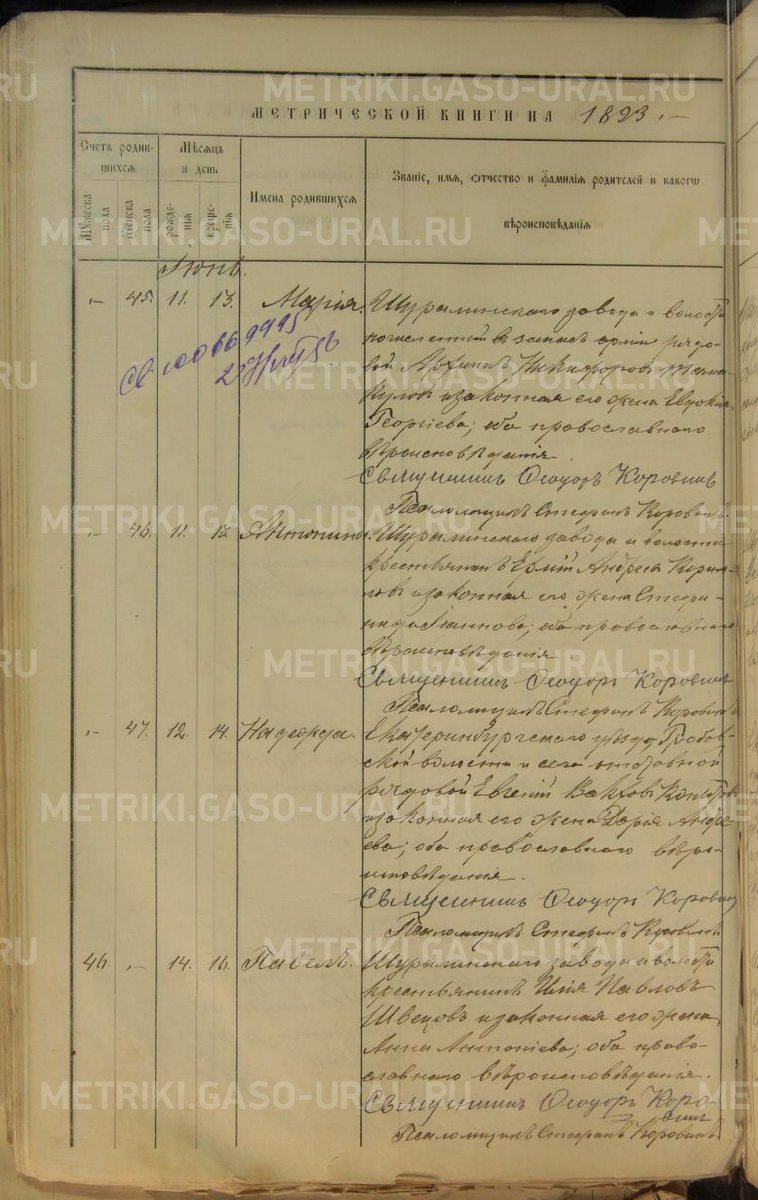 МЕТРИЧЕСКОЙ КНИГИ НА 1893.
Счетъ родив-
шихся
Мѣсяцъ
и день
Имена родившихся
Званіе, имя, отчество и фамилія родителей и какого
вѣроисповѣданія
Мужеска пола
Женска пола
рожде-
нія
креще-
нія
Іюнь.
45. 11. 13. Марія.
Шуралинскаго завода и волости
въ запасъ арміи рядо-
вой Архипъ Никифоровъ
и законная его жена Евдокія
Георгіева; оба православнаго
вѣроисповѣданія.
Священникъ Ѳеодоръ Коровинъ
Псаломщикъ Стефанъ Коровинъ
46. 11. 13. Антонина.
Шуралинскаго завода и волости
крестьянинъ Ермій Андреевъ
и законная его жена Стефа-
нида Іоаннова; оба православнаго
вѣроисповѣданія.
Священникъ Ѳеодоръ Коровинъ
Псаломщикъ Стефанъ Коровинъ
47. 12. 14. Надежда.
Екатеринбургскаго уѣзда
ской волости и села
рядовой Евгеній
и законная его жена Дарія Андре-
ева; оба православнаго вѣро-
исповѣданія.
Священникъ Ѳеодоръ Коровинъ
Псаломщикъ Стефанъ Коровинъ
46. 14. 16. Павелъ.
Шуралинскаго завода и волости
крестьянинъ Илія Павловъ
Швецовъ и законная его жена
Анна Антоніева; оба право-
славнаго вѣроисповѣданія.
Священникъ Ѳеодоръ Коро-
винъ
Псаломщикъ Стефанъ Коровинъ
METRIKI.GASO-URAL.RU